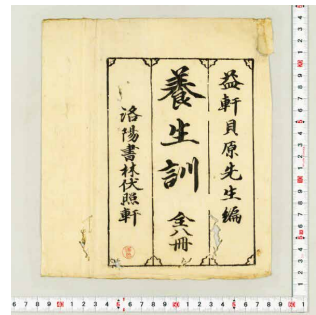 益軒貝原先生編
養生訓 全八冊
洛陽書林伏照軒